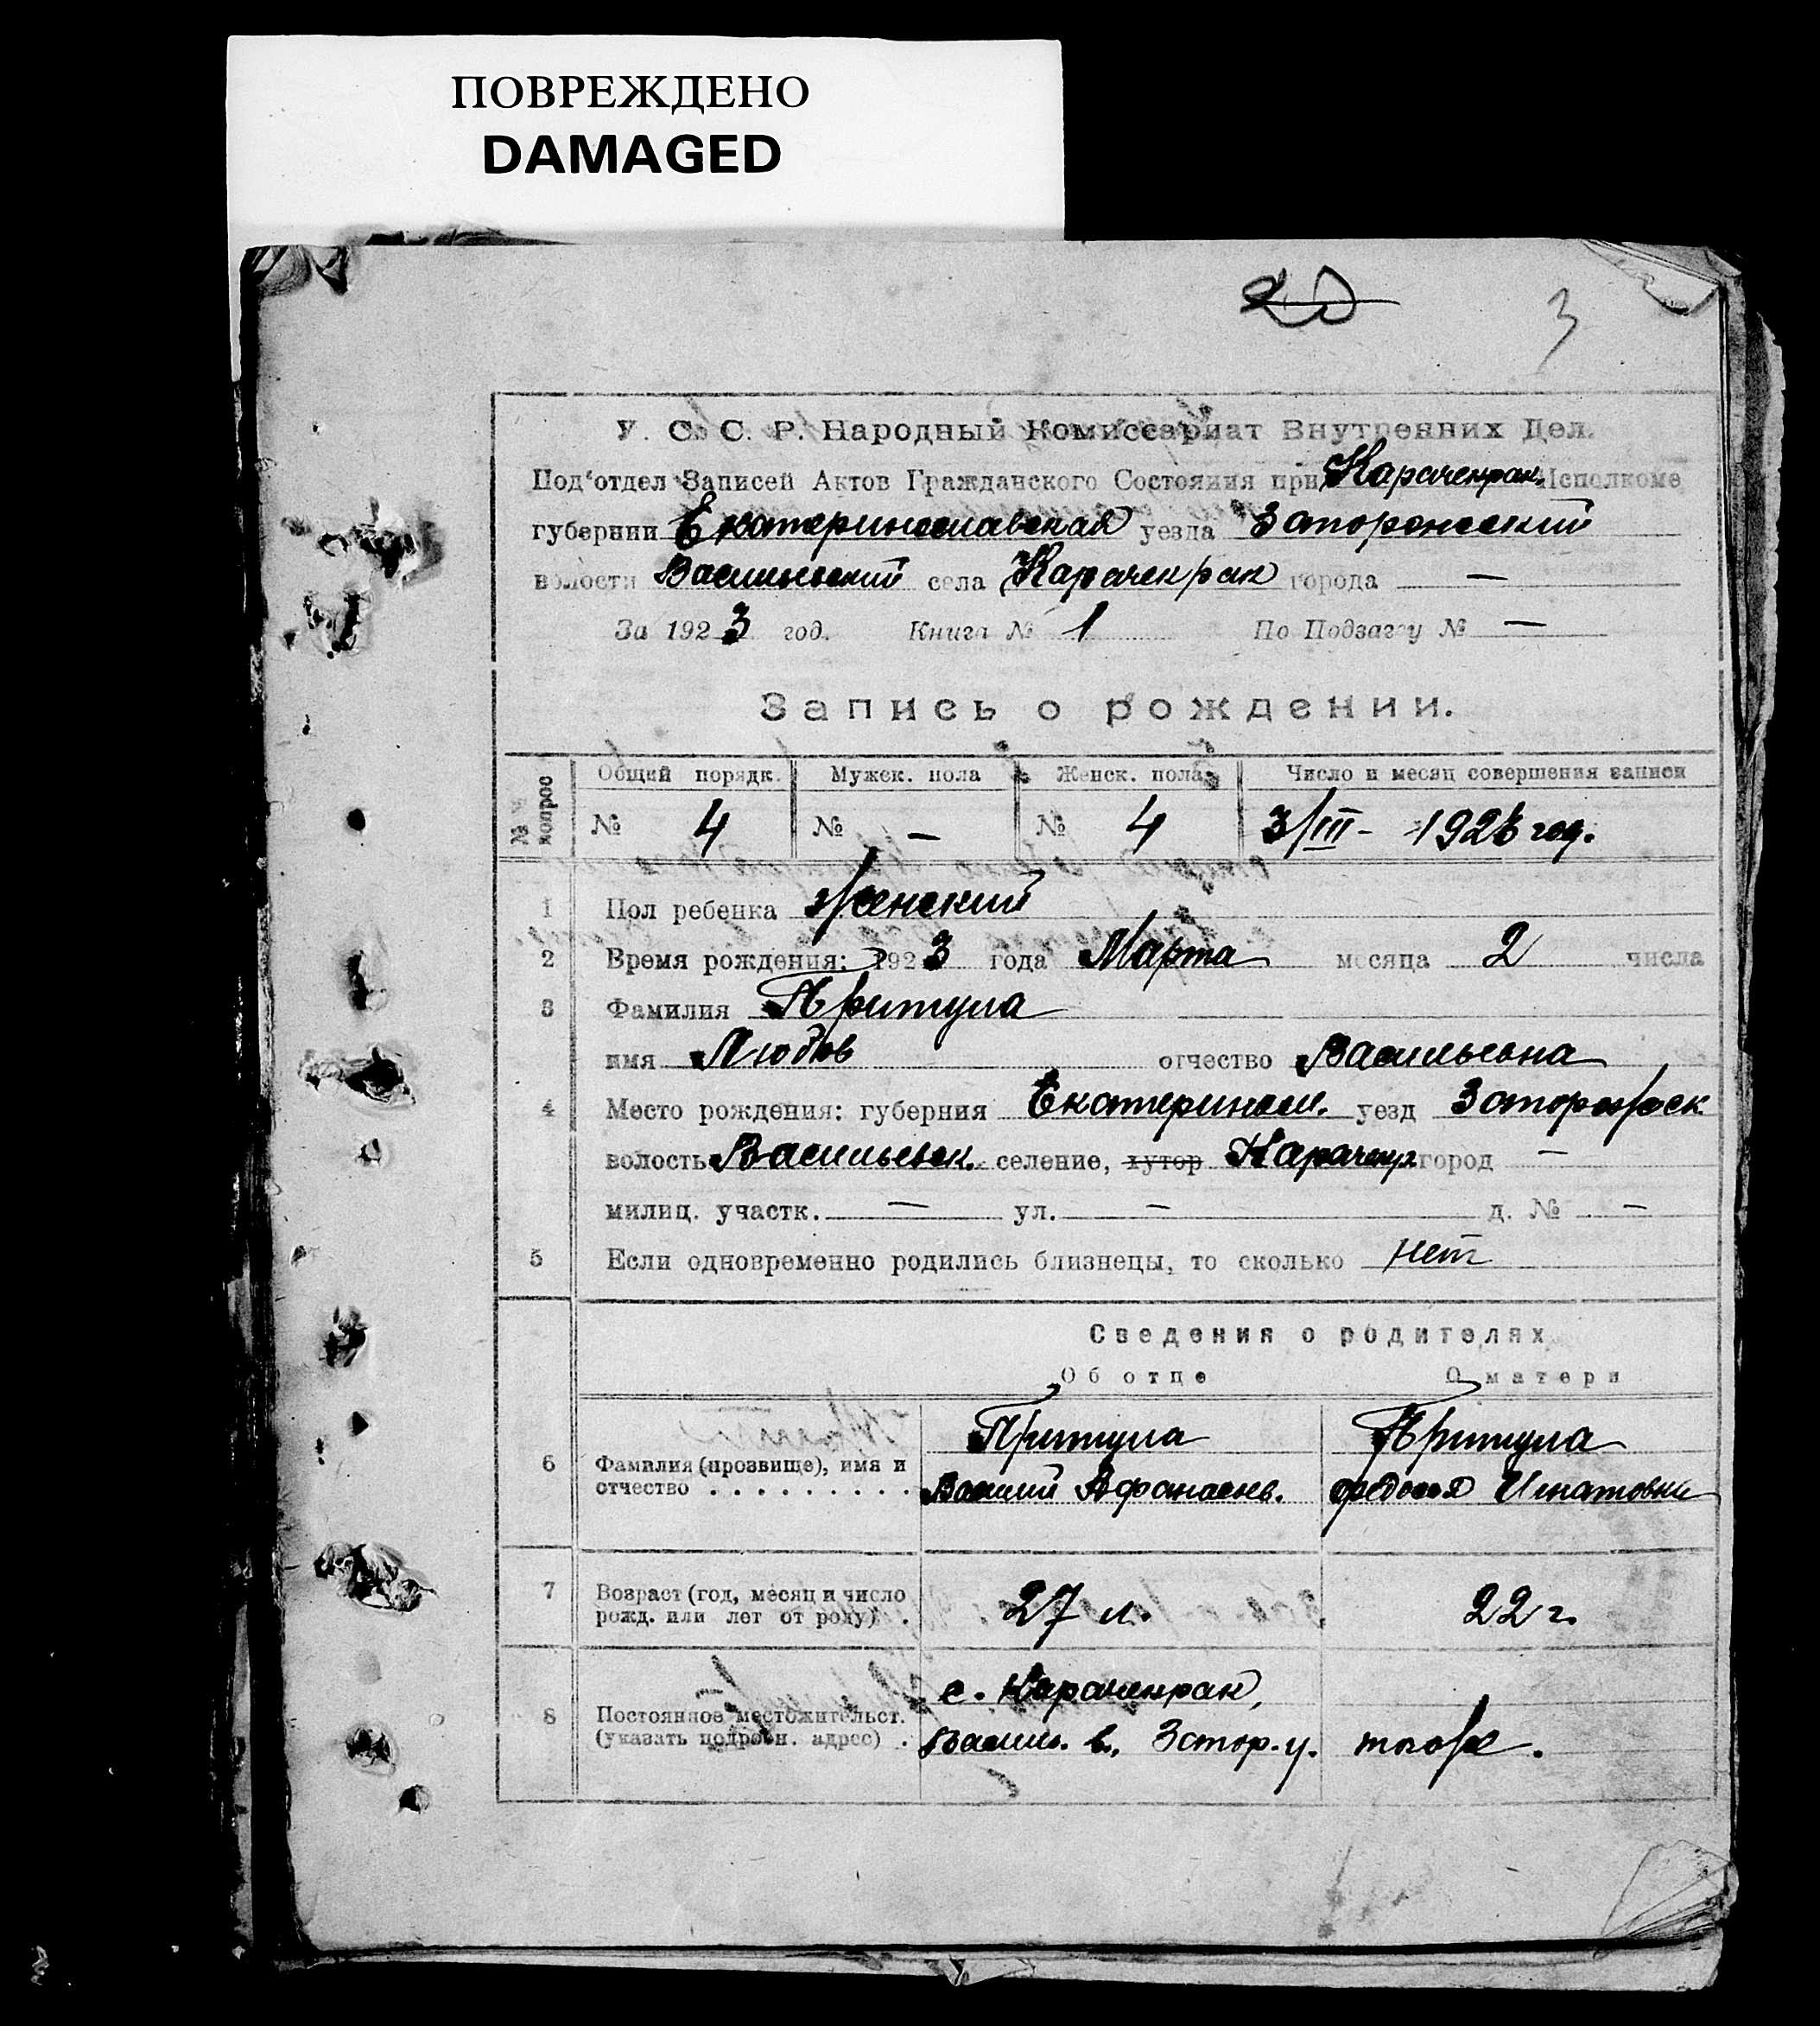 ПОВРЕЖДЕНО
DAMAGED
20 3
У. С. С. Р. Народный Комиссариат Внутренних Дел.
Под'отдел Записей Актов Гражданского Состояния при Карачекрак. Исполкоме
губернии Екатеринославская уезда Запорожский
волости Васильевский села Карачекрак города —
За 1923 год. Книга № 1 По Подзагсу № —
Запись о рождении.
№ № вопросо Общий порядк. Мужск. пола Женск. пола Число и месяц совершения записи
№ 4 № — № 4 3/III - 1923 год.
1 Пол ребенка женский
2 Время рождения: 1923 года Марта месяца 2 числа
3 Фамилия Притула
имя Любов отчество Васильевна
4 Место рождения: губерния Екатериносл. уезд Запорожск
волость Васильевск. селение, хутор Карачекр город —
милиц. участк. — ул. — д. № —
5 Если одновременно родились близнецы, то сколько нет
Сведения о родителях
Об отце О матери
Притула Притула
6 Фамилия (прозвище), имя и
отчество . . . . . . . . . Василий Афанасиев. Федосия Игнатовна
7 Возраст (год, месяц и число
рожд. или лет от роду) . 27 л. 22 г.
с. Карачекрак,
8 Постоянное местожительст.
(указать подробн. адрес) . Васил. в. Запор. у. тоже.